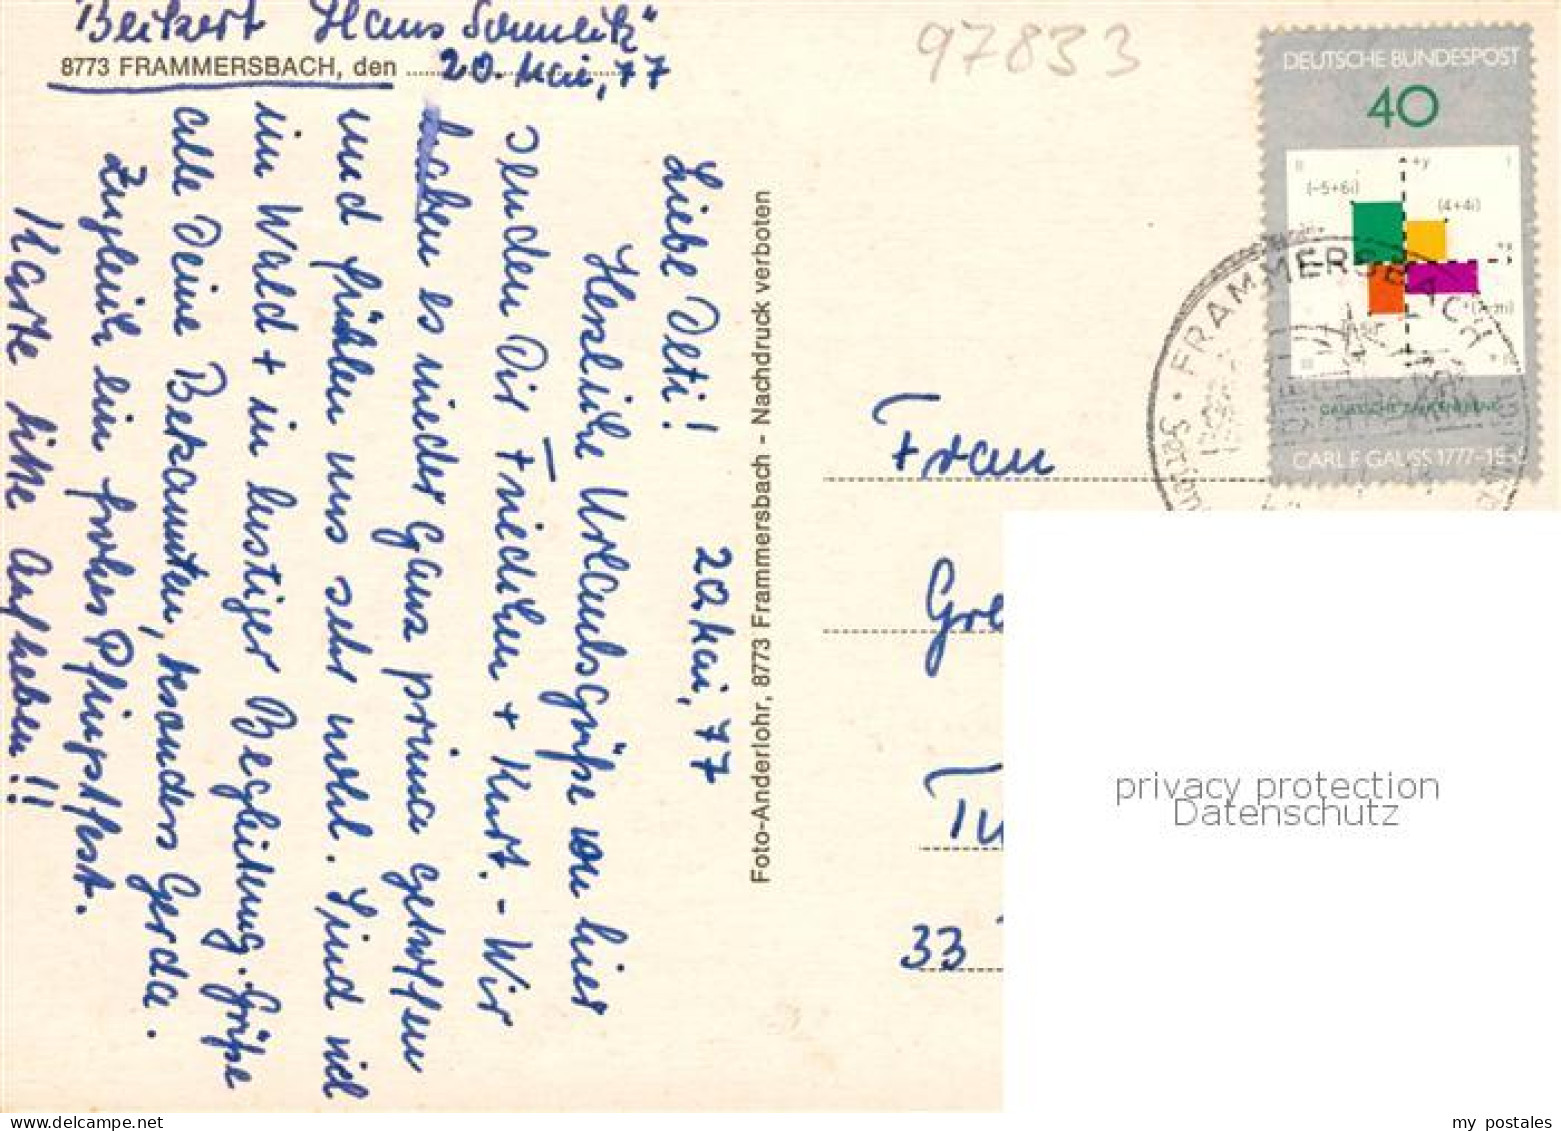 Haus
8773 FRAMMERSBACH, den
20. Mai, 77
97833
DEUTSCHE BUNDESPOST
40
II +y I
(-5+6i)
(4+4i)
III
CARL F. GAUSS 1777-18
FRAMMERSBACH
Liebe Deti!
20. Mai, 77
Herzliche Urlaubsgrüße von hier
senden Dir Friedchen + Kurt. - Wir
haben es wieder ganz prima getroffen
und fühlen uns sehr wohl. Sind viel
im Wald + in lustiger Begleitung. Grüße
alle Deine Bekannten, besonders Gerda.
Zugleich ein frohes Pfingstfest.
Karte bitte aufheben!!
Foto-Anderlohr, 8773 Frammersbach - Nachdruck verboten
Frau
Gre
33
privacy protection
Datenschutz
my postales